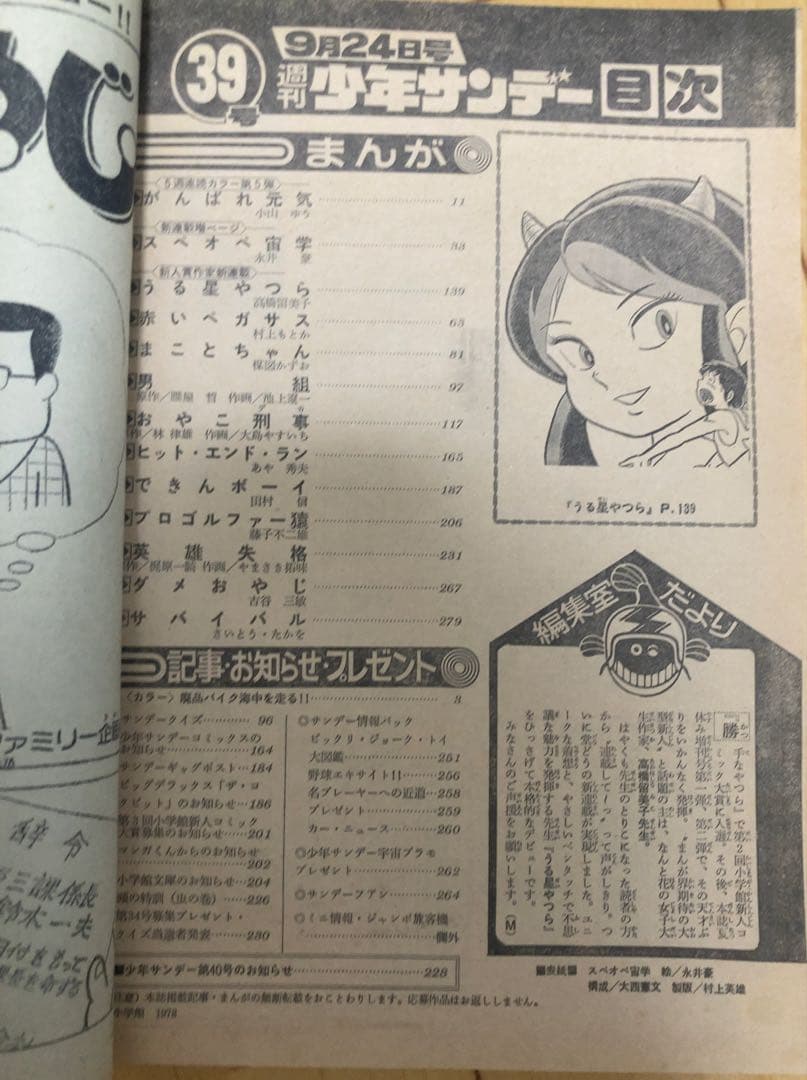 39号
9月24日号
週刊少年サンデー目次
まんが
〈5週連続カラー第5弾〉
がんばれ元気 11
小山ゆう
〈新連載増ページ〉
スペオペ宙学 33
永井豪
〈新人賞作家新連載〉
うる星やつら 139
高橋留美子
赤いペガサス 65
村上もとか
まことちゃん 81
楳図かずお
男組 97
原作/雁屋哲 作画/池上遼一
おやこ刑事 117
デカ
作/林律雄 作画/大島やすいち
ヒット・エンド・ラン 165
あや秀夫
できんボーイ 187
田村信
プロゴルファー猿 206
藤子不二雄
英雄失格 231
作/梶原一騎 作画/やまさき拓味
ダメおやじ 267
古谷三敏
サバイバル 279
さいとう・たかを
『うる星やつら』P.139
記事・お知らせ・プレゼント
〈カラー〉廃品バイク海中を走る!! 3
サンデークイズ 96
少年サンデーコミックスの
お知らせ 164
サンデーギャグポスト 184
ビッグデラックス「ザ・コ
クピット」のお知らせ 186
第3回小学館新人コミック
大賞募集のお知らせ 201
マンガくんからのお知らせ
202
小学館文庫のお知らせ 204
の特訓(虫の巻) 226
第34号募集プレゼント・
クイズ当選者発表 230
◎サンデー情報パック
ビックリ・ジョーク・トイ
大図鑑 251
野球エキサイト!! 256
名プレーヤーへの近道 258
プレゼント 259
カー・ニュース 260
◎少年サンデー宇宙プラモ
プレゼント 262
◎サンデーファン 264
◎ミニ情報・ジャンボ旅客機
欄外
■少年サンデー第40号のお知らせ 228
注意)本誌掲載記事・まんがの無断転載をおことわりします。応募作品はお返ししません。
小学館 1978
編集室だより
『勝手なやつら』で第2回小学館新人コ
ミック大賞に入選。その後、本誌夏
休み増刊号第一弾、第二弾で、その天才ぶ
りをいかんなく発揮。"まんが界期待の大
型新人"と話題の主は、なんと花の女子大
生作家、高橋留美子先生。
はやくも先生のとりこになった読者の方
から、"連載して〜っ"って声がしきり。つ
いに堂どうの新連載が実現しました。ユニ
ークな着想と、やさしいペンタッチで不思
議な魅力を発揮する先生、『うる星やつら』
をひっさげて本格的なデビューです。
みなさんのご声援をお願いします。(M)
■表紙■ スペオペ宙学 絵/永井豪
構成/大西憲文 製版/村上英雄
ファミリー企画
辞令
三課係長
鈴木一夫